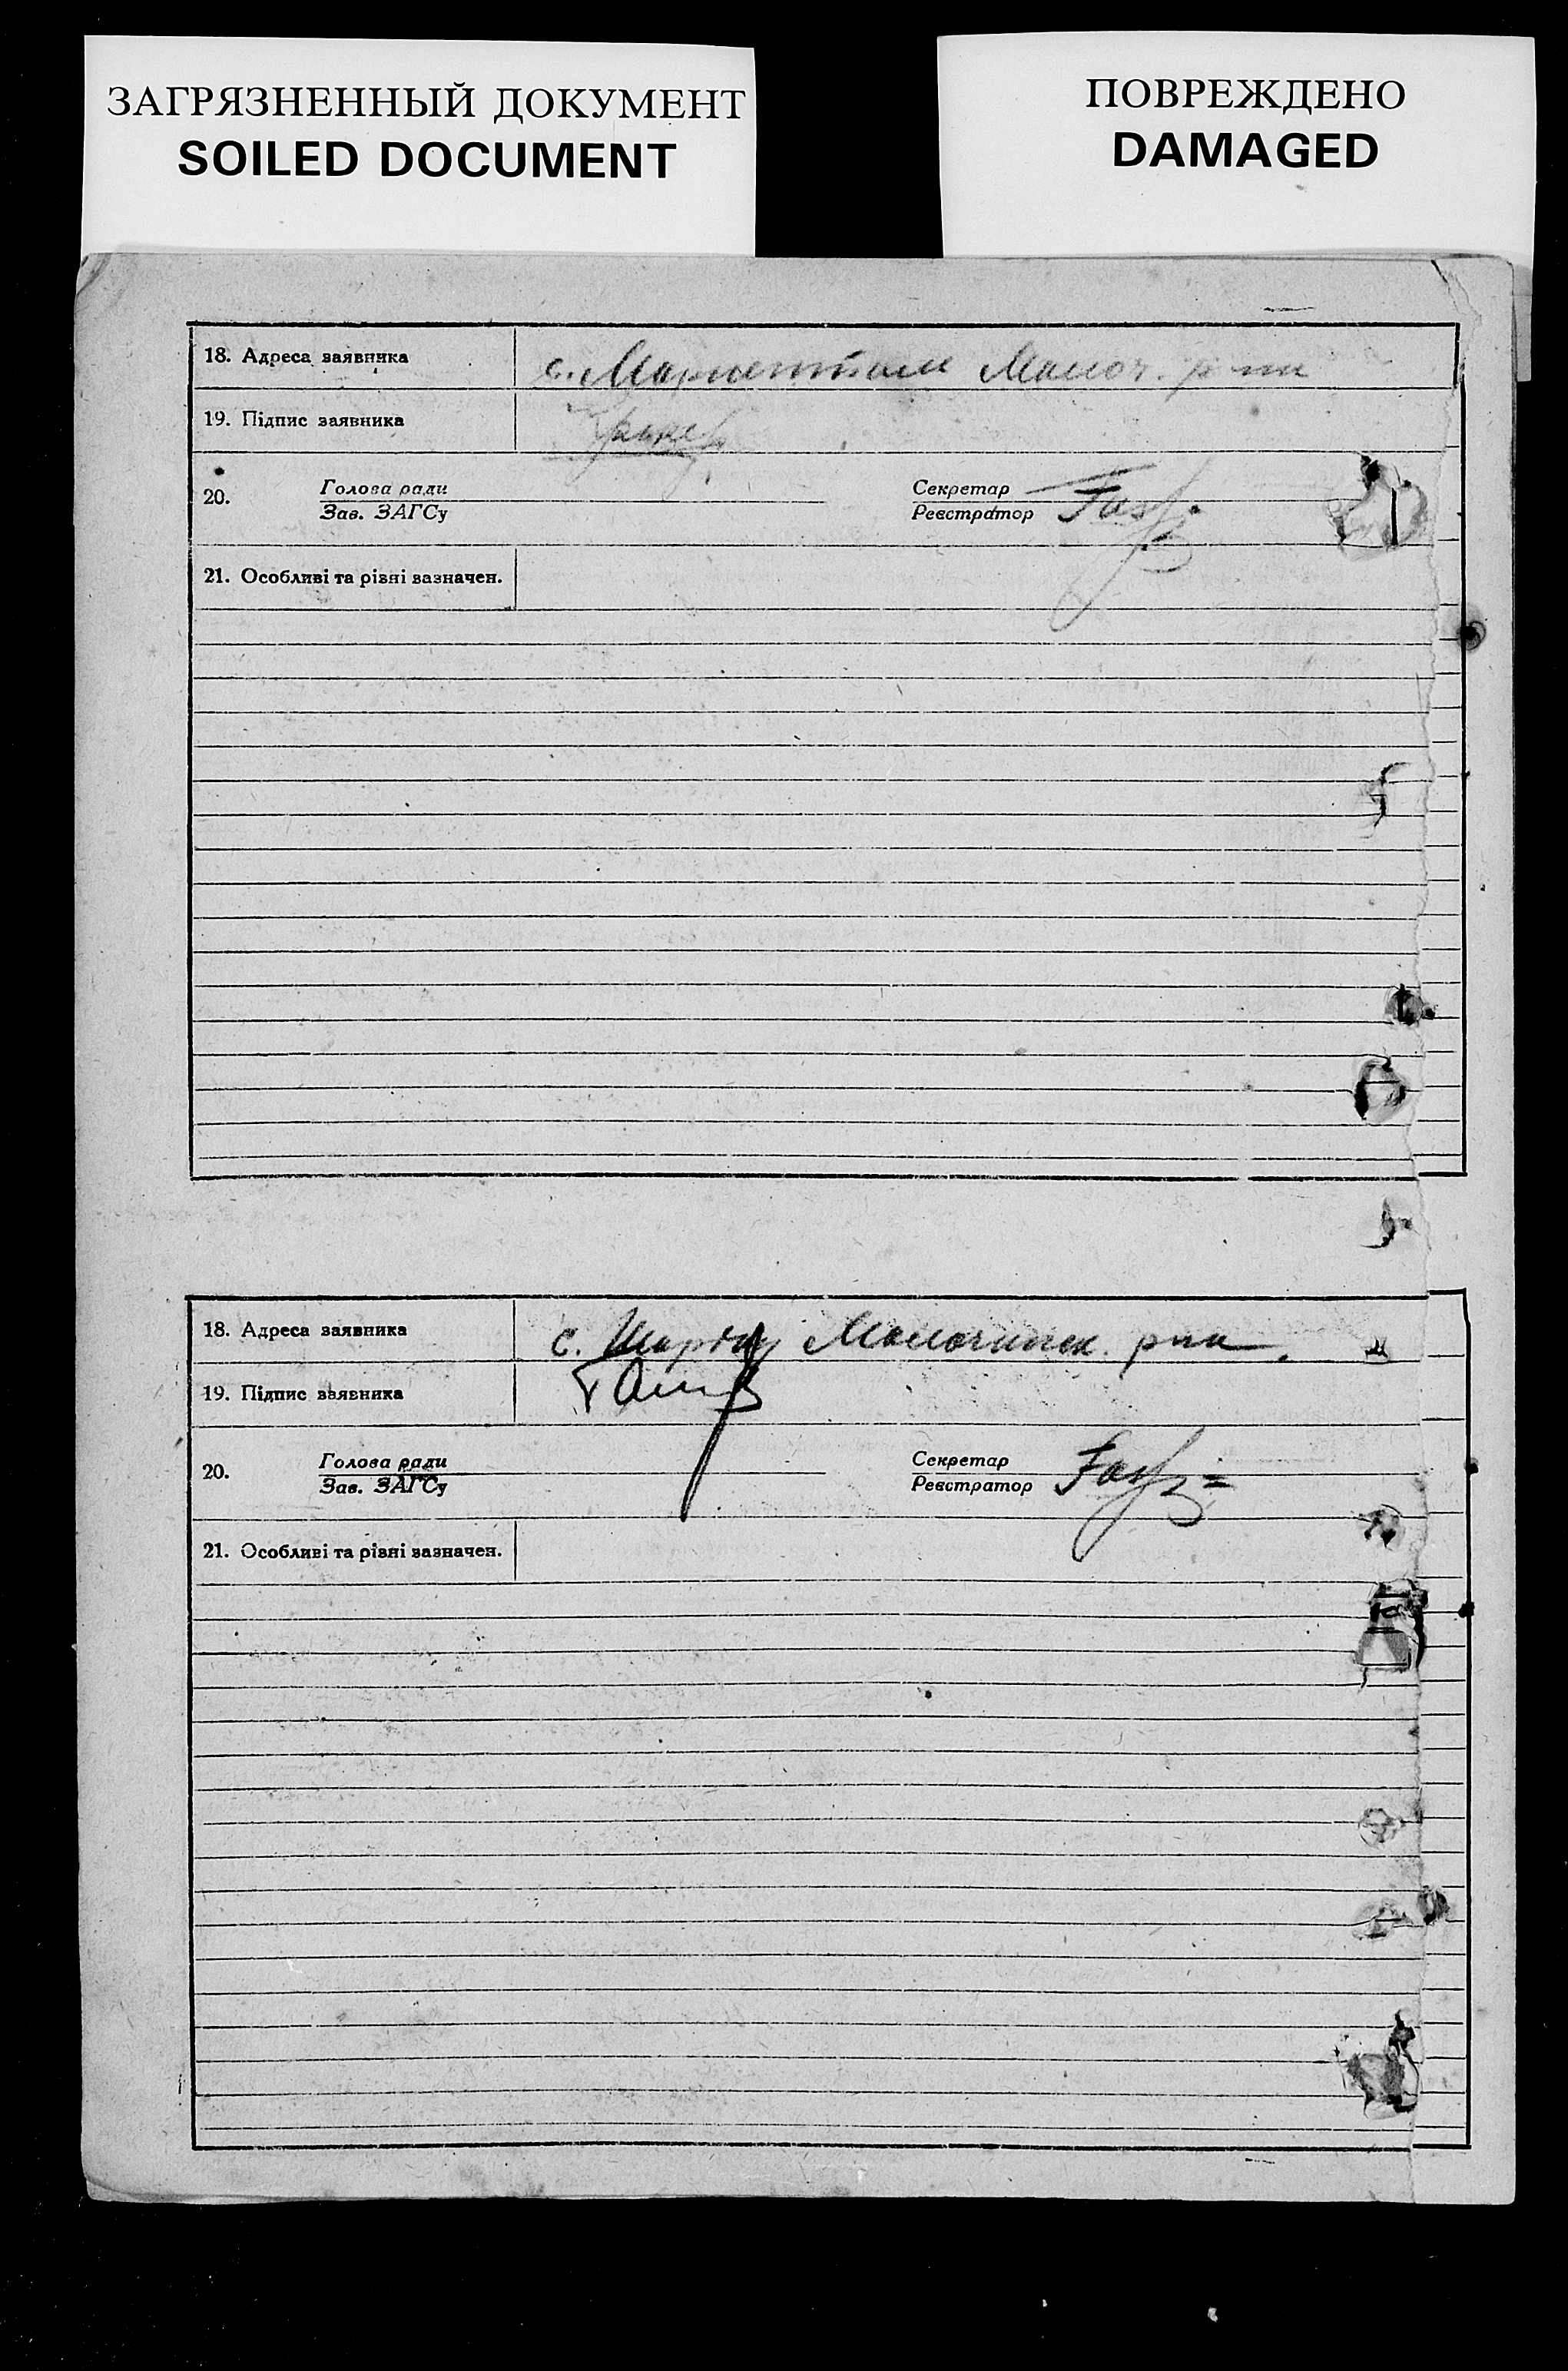 ЗАГРЯЗНЕННЫЙ ДОКУМЕНТ
SOILED DOCUMENT
ПОВРЕЖДЕНО
DAMAGED
18. Адреса заявника с. Мариентали Молоч. р-ну
19. Підпис заявника
20. Голова ради Секретар
Зав. ЗАГСу Реєстратор
21. Особливі та різні зазначен.
18. Адреса заявника с. Молочанск. р-на.
19. Підпис заявника
20. Голова ради Секретар
Зав. ЗАГСу Реєстратор
21. Особливі та різні зазначен.